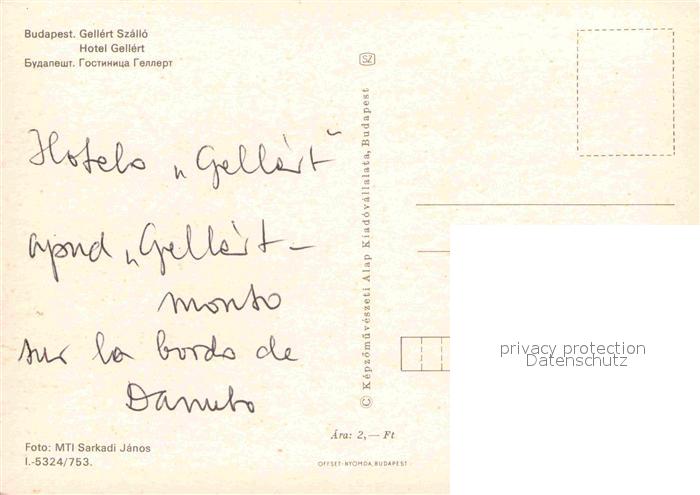 Budapest. Gellért Szálló
Hotel Gellért
Будапешт. Гостиница Геллерт
SZ
Hotelo „Gellért“
apud „Gellért-
monto
sur la bordo de
Danubo
© Képzőművészeti Alap Kiadóvállalata, Budapest
privacy protection
Datenschutz
Ára: 2,— Ft
Foto: MTI Sarkadi János
I.-5324/753.
OFFSET-NYOMDA, BUDAPEST